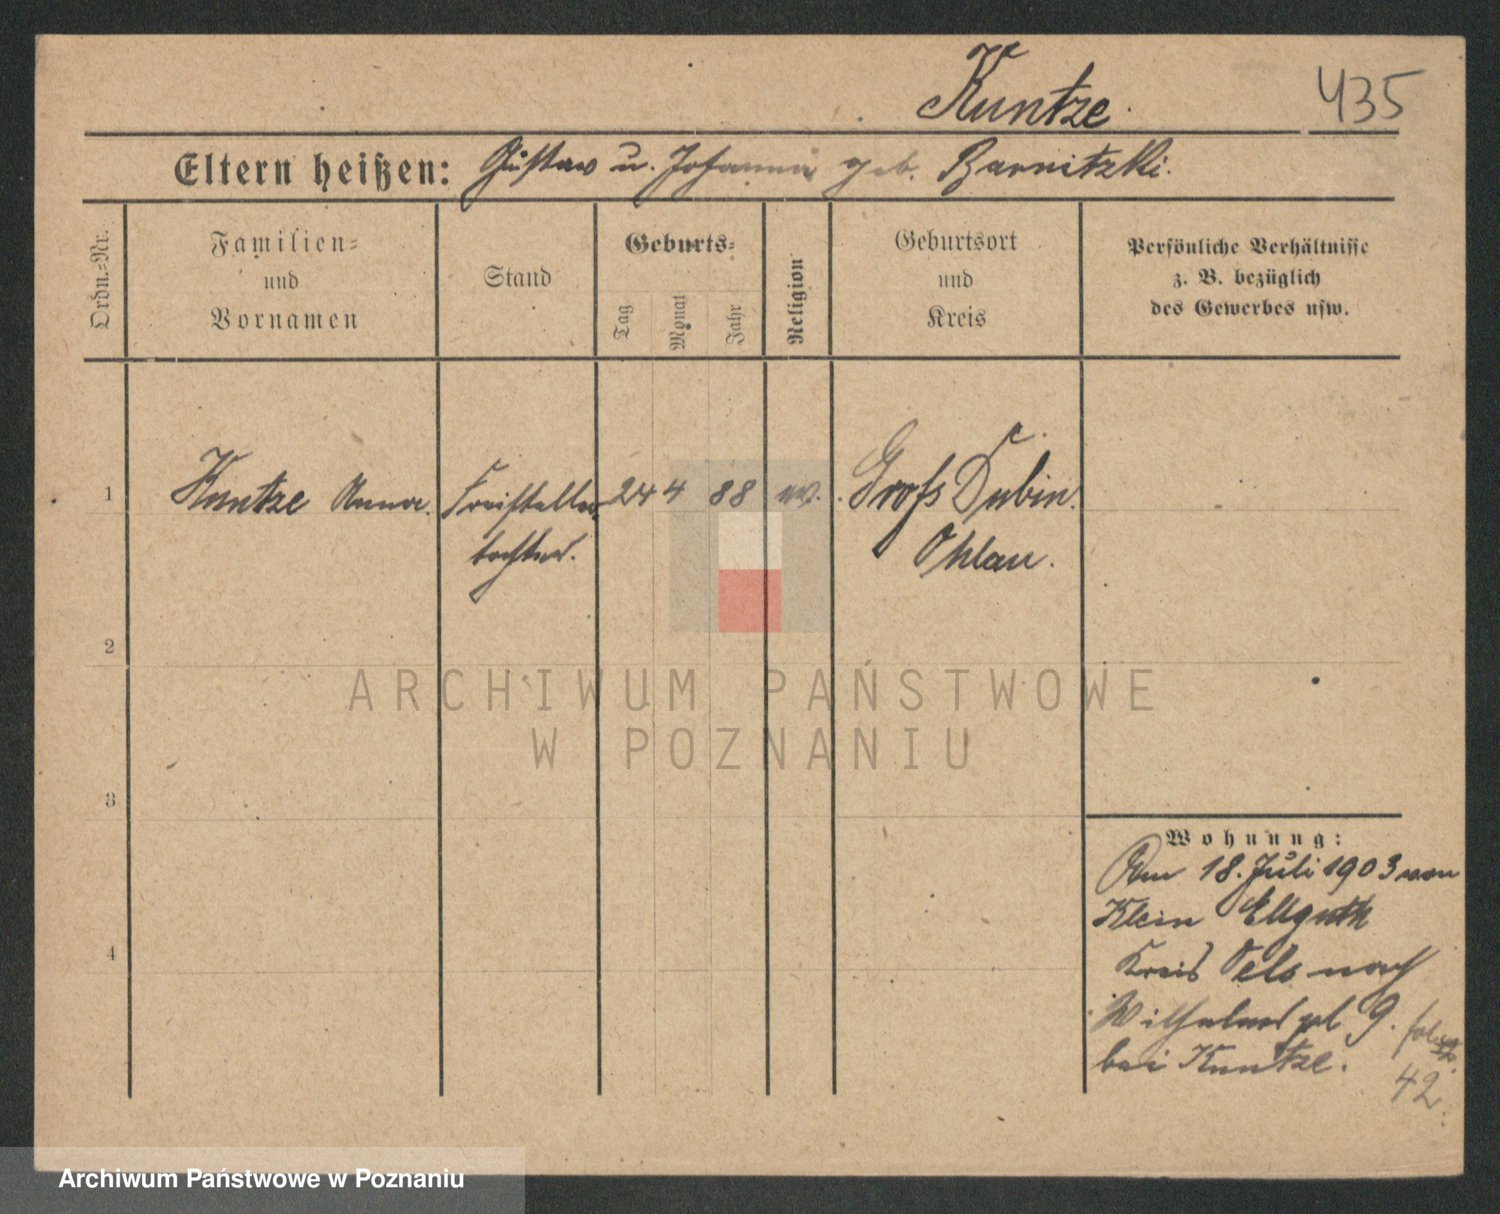 Kuntze.
435
Eltern heißen: Gustav u. Johanna geb. Barnitzki.
Ordn.=Nr.
Familien=
und
Vornamen
Stand
Geburts=
Tag
Monat
Jahr
Religion
Geburtsort
und
Kreis
Persönliche Verhältnisse
z. B. bezüglich
des Gewerbes usw.
1 Kuntze Anna. Freistellen 24 4 88 ev. Groß Dubin.
tochter. Ohlau.
2
3
4
Wohnung:
Am 18. Juli 1903 von
Klein Ellguth
Kreis Oels nach
Wilhelmspl 9.
bei Kuntze.
fol.
42.
ARCHIWUM PAŃSTWOWE
W POZNANIU
Archiwum Państwowe w Poznaniu